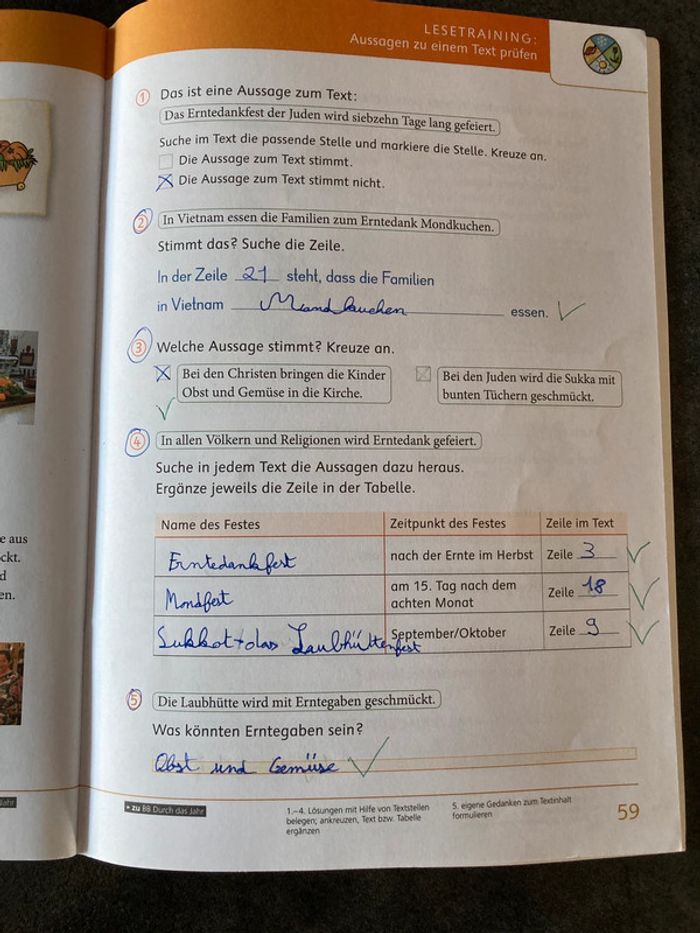 LESETRAINING:
Aussagen zu einem Text prüfen
1 Das ist eine Aussage zum Text:
Das Erntedankfest der Juden wird siebzehn Tage lang gefeiert.
Suche im Text die passende Stelle und markiere die Stelle. Kreuze an.
Die Aussage zum Text stimmt.
Die Aussage zum Text stimmt nicht.
2 In Vietnam essen die Familien zum Erntedank Mondkuchen.
Stimmt das? Suche die Zeile.
In der Zeile 21 steht, dass die Familien
in Vietnam essen.
3 Welche Aussage stimmt? Kreuze an.
Bei den Christen bringen die Kinder
Obst und Gemüse in die Kirche.
Bei den Juden wird die Sukka mit
bunten Tüchern geschmückt.
4 In allen Völkern und Religionen wird Erntedank gefeiert.
Suche in jedem Text die Aussagen dazu heraus.
Ergänze jeweils die Zeile in der Tabelle.
Name des Festes Zeitpunkt des Festes Zeile im Text
Erntedankfest nach der Ernte im Herbst Zeile 3
Mondfest am 15. Tag nach dem
achten Monat Zeile 18
Sukkot + das Laubhüttenfest September/Oktober Zeile 9
5 Die Laubhütte wird mit Erntegaben geschmückt.
Was könnten Erntegaben sein?
Obst und Gemüse
zu BB Durch das Jahr
1.–4. Lösungen mit Hilfe von Textstellen
belegen; ankreuzen, Text bzw. Tabelle
ergänzen
5. eigene Gedanken zum Textinhalt
formulieren
59
e aus
ckt.
d
en.
Jahr